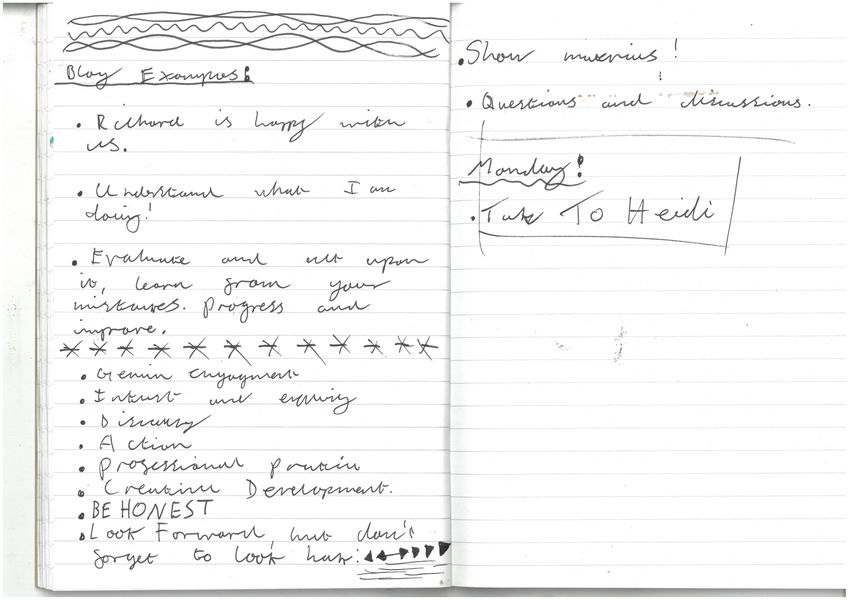 Blog Examples:
• Richard is happy with
us.
• Understand what I am
doing!
• Evaluate and act upon
it, learn from your
mistakes. Progress and
improve.
• Genuin engagment
• Intrest and enquiry
• Discovery
• Action
• Professional practice
• Creative Development.
• BE HONEST
• Look Forward, but don't
forget to look back:
• Show materials!
• Questions and discussions.
Monday!
• Talk To Heidi